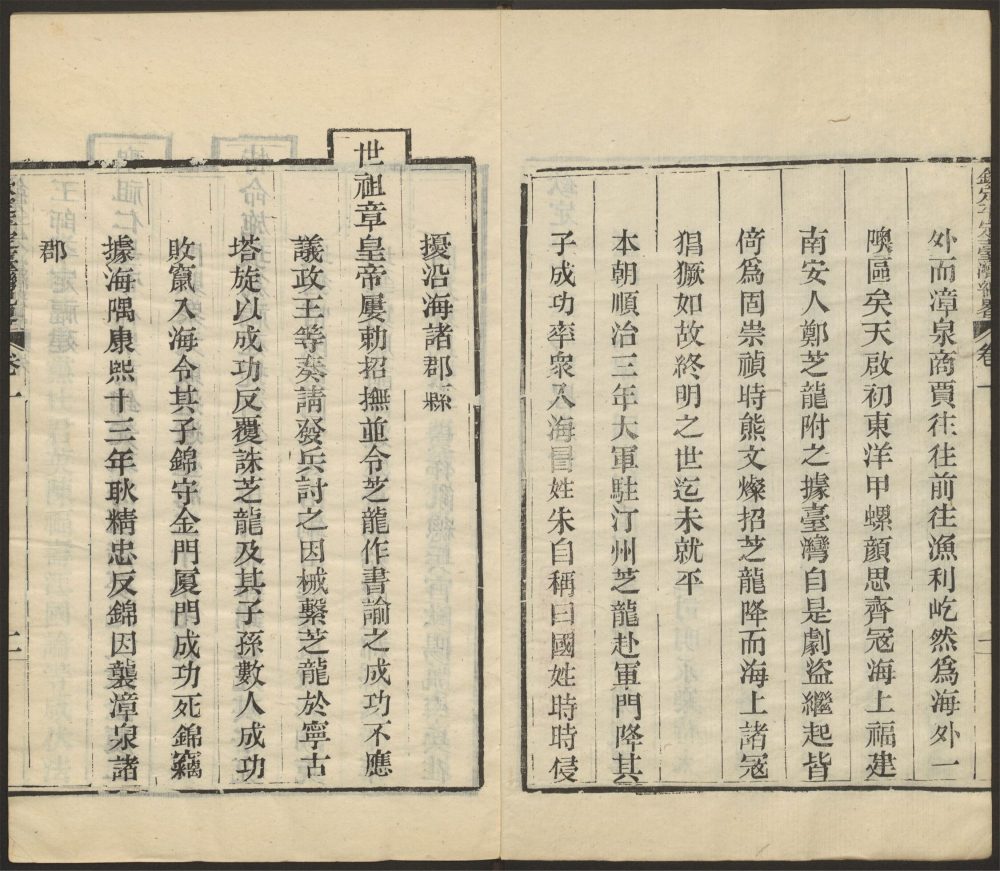 欽定平定臺灣紀畧 卷一
外而漳泉商賈往往前往漁利屹然爲海外一
隩區矣天啟初東洋甲螺顔思齊冦海上福建
南安人鄭芝龍附之據臺灣自是劇盜繼起皆
倚爲固崇禎時熊文燦招芝龍降而海上諸冦
猖獗如故終明之世迄未就平
本朝順治三年大軍駐汀州芝龍赴軍門降其
子成功率衆入海冒姓朱自稱曰國姓時時侵
擾沿海諸郡縣
世祖章皇帝屢勅招撫並令芝龍作書諭之成功不應
議政王等奏請發兵討之因械繫芝龍於寧古
塔旋以成功反覆誅芝龍及其子孫數人成功
敗竄入海令其子錦守金門厦門成功死錦竊
據海隅康熙十三年耿精忠反錦因襲漳泉諸
郡
卷一 二